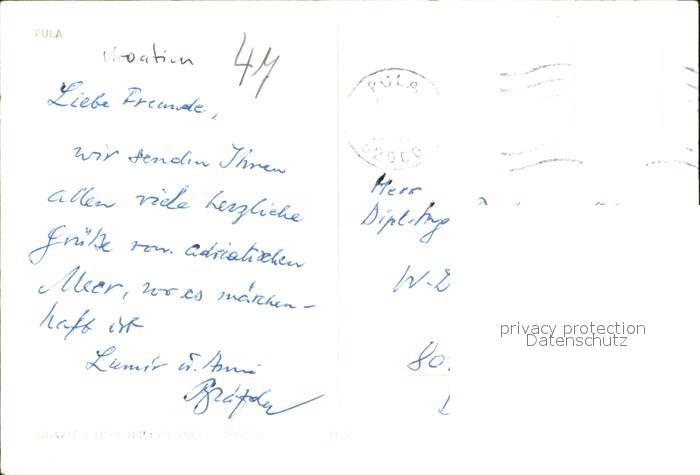 PULA
Kroatien
41
Liebe Freunde,
wir senden Ihnen
allen viele herzliche
Grüße vom adriatischen
Meer, wo es märchen-
haft ist
Lumir u. Anni
PULA
52000
Herr
Dipl.-Ing
W-
80
privacy protection
Datenschutz